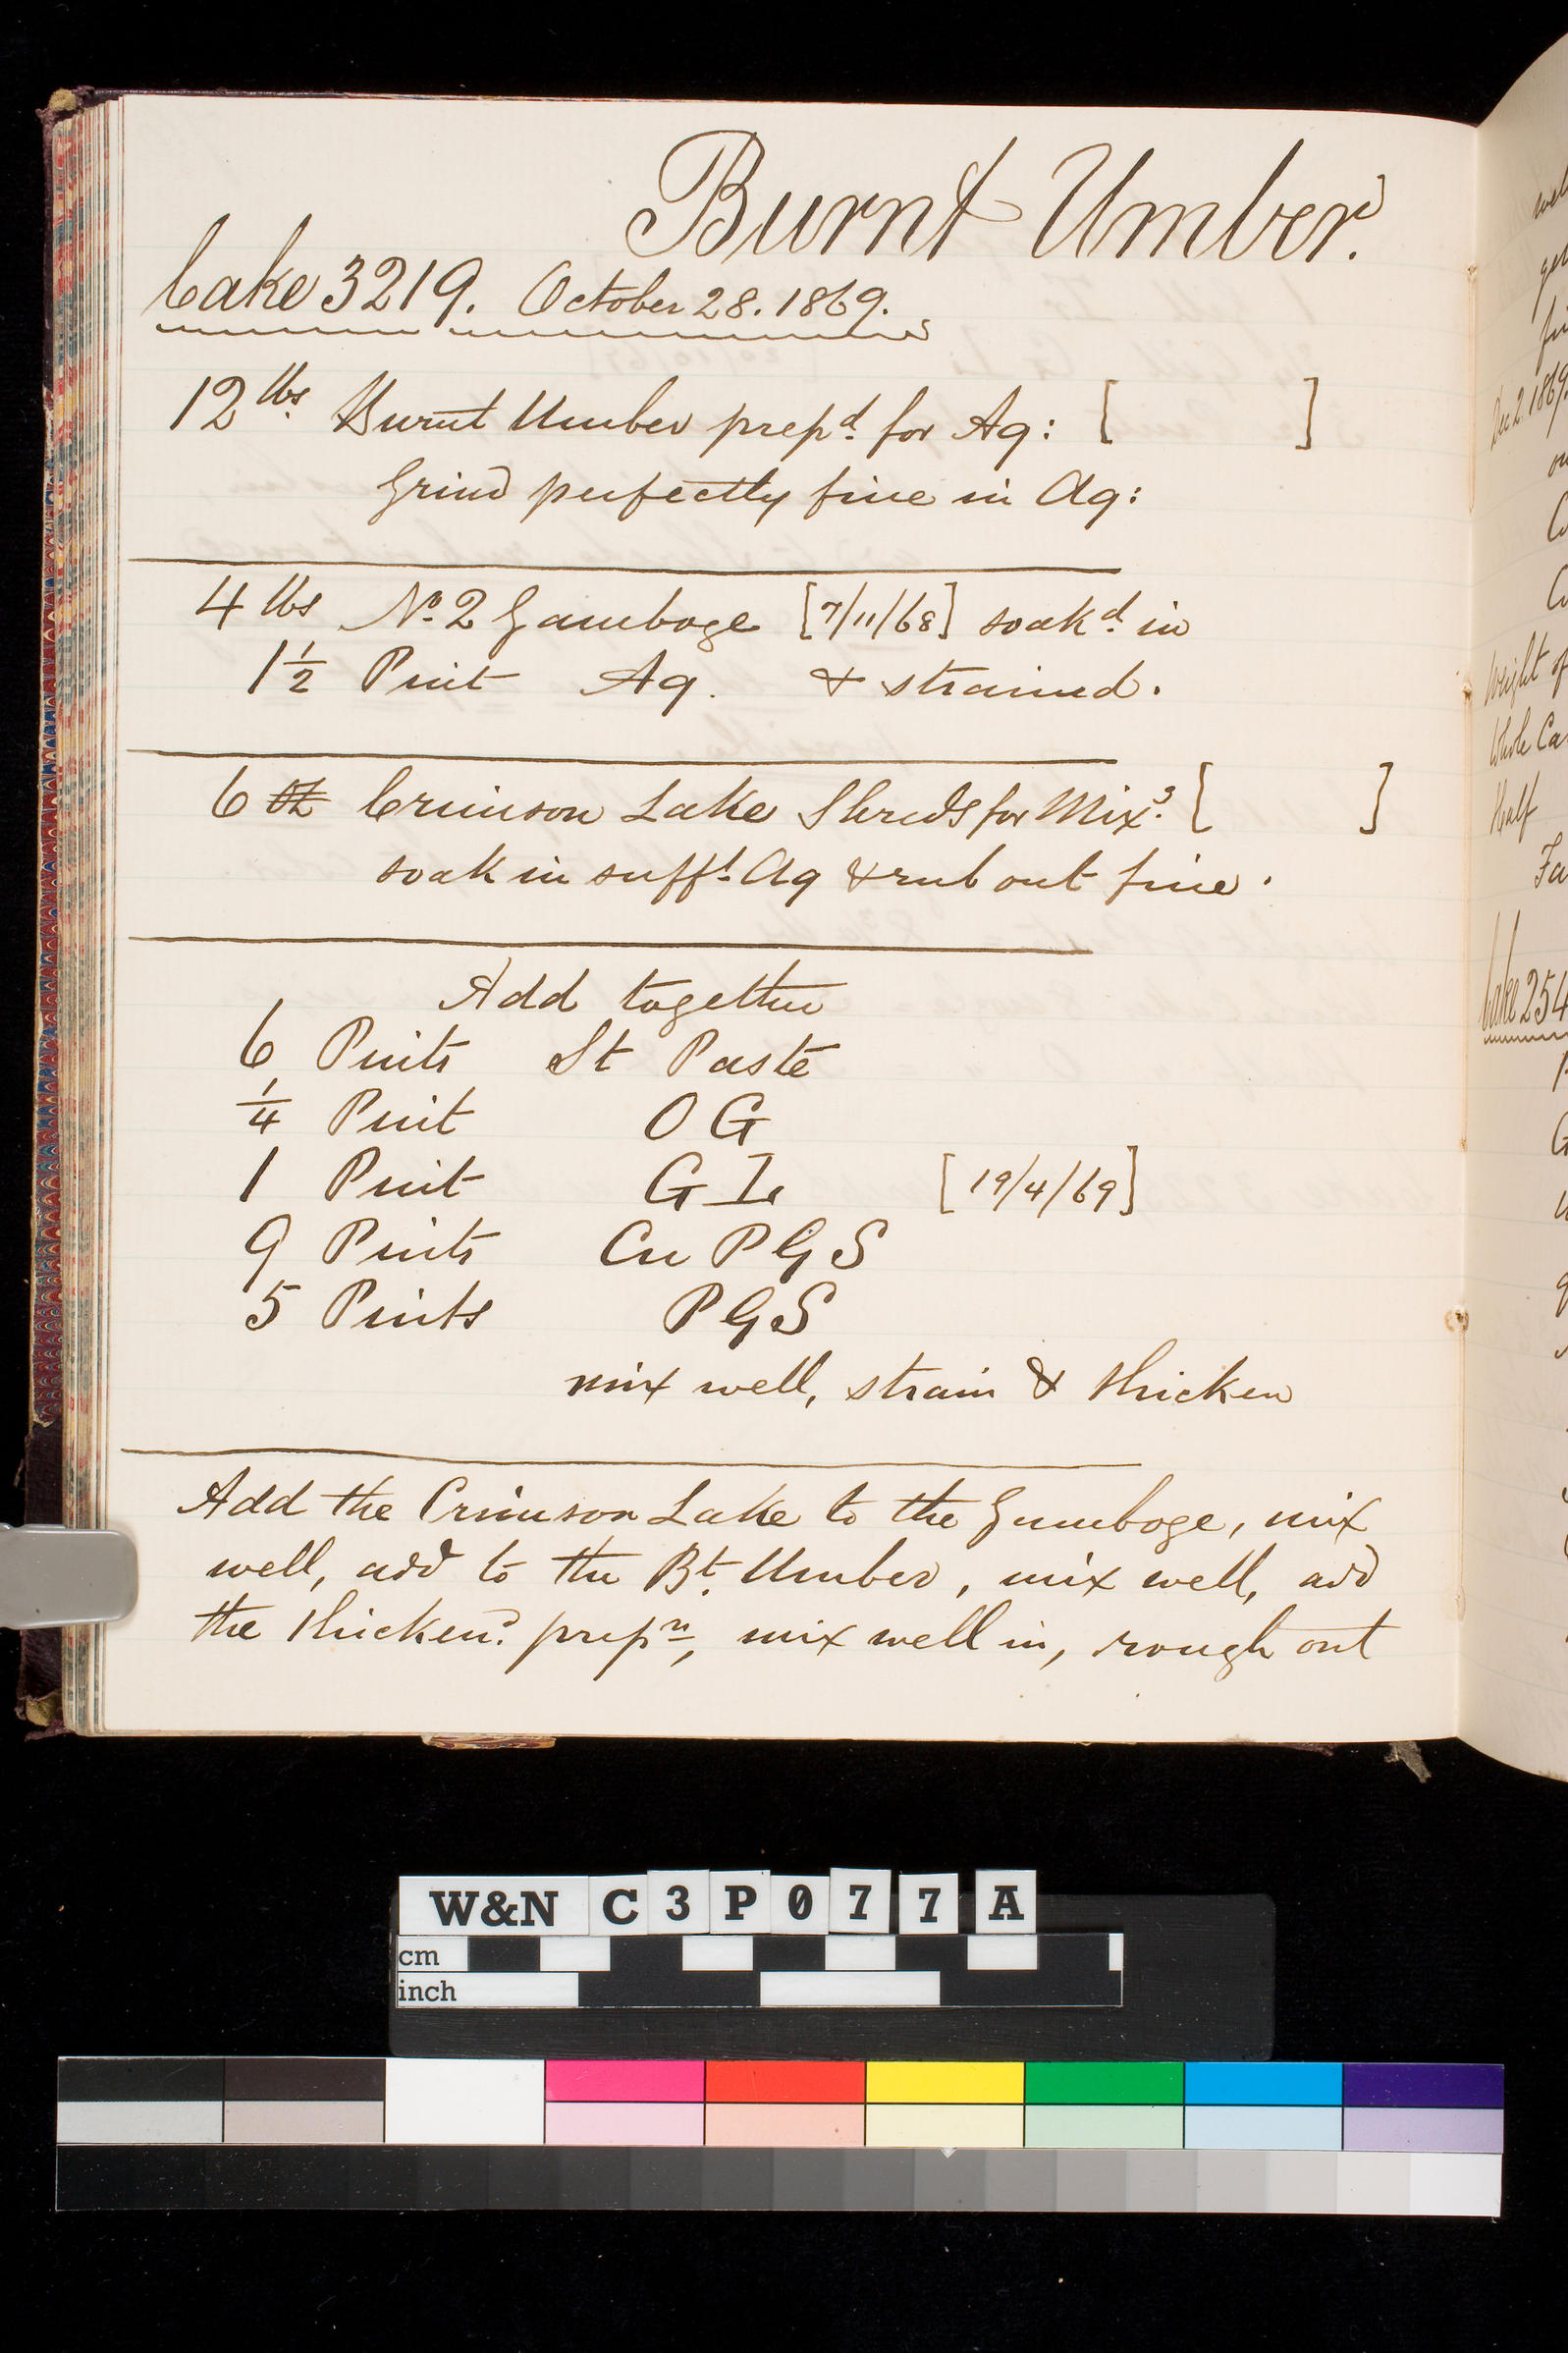 Burnt Umber.
Cake 3219. October 28. 1869.
12 lbs. Burnt Umber prepd. for Aq: [ ]
Grind perfectly fine in Aq:
4 lbs No. 2 Gamboge [7/11/68] soakd. in
1 1/2 Pint Aq. & strained.
6 oz Crimson Lake Shreds for Mixs. [ ]
soak in sufft. Aq & rub out fine.
Add together
6 Pints St Paste
1/4 Pint O G
1 Pint G I. [19/4/69]
9 Pints Cu P G S
5 Pints P G S
mix well, strain & thicken
Add the Crimson Lake to the Gamboge, mix
well, add to the Bt. Umber, mix well, add
the thickend. prepn, mix well in, rough out
Dec 2. 1869
Weight of
Whole Ca
Half
Fa
Cake 254
W&N C3P077A
cm
inch